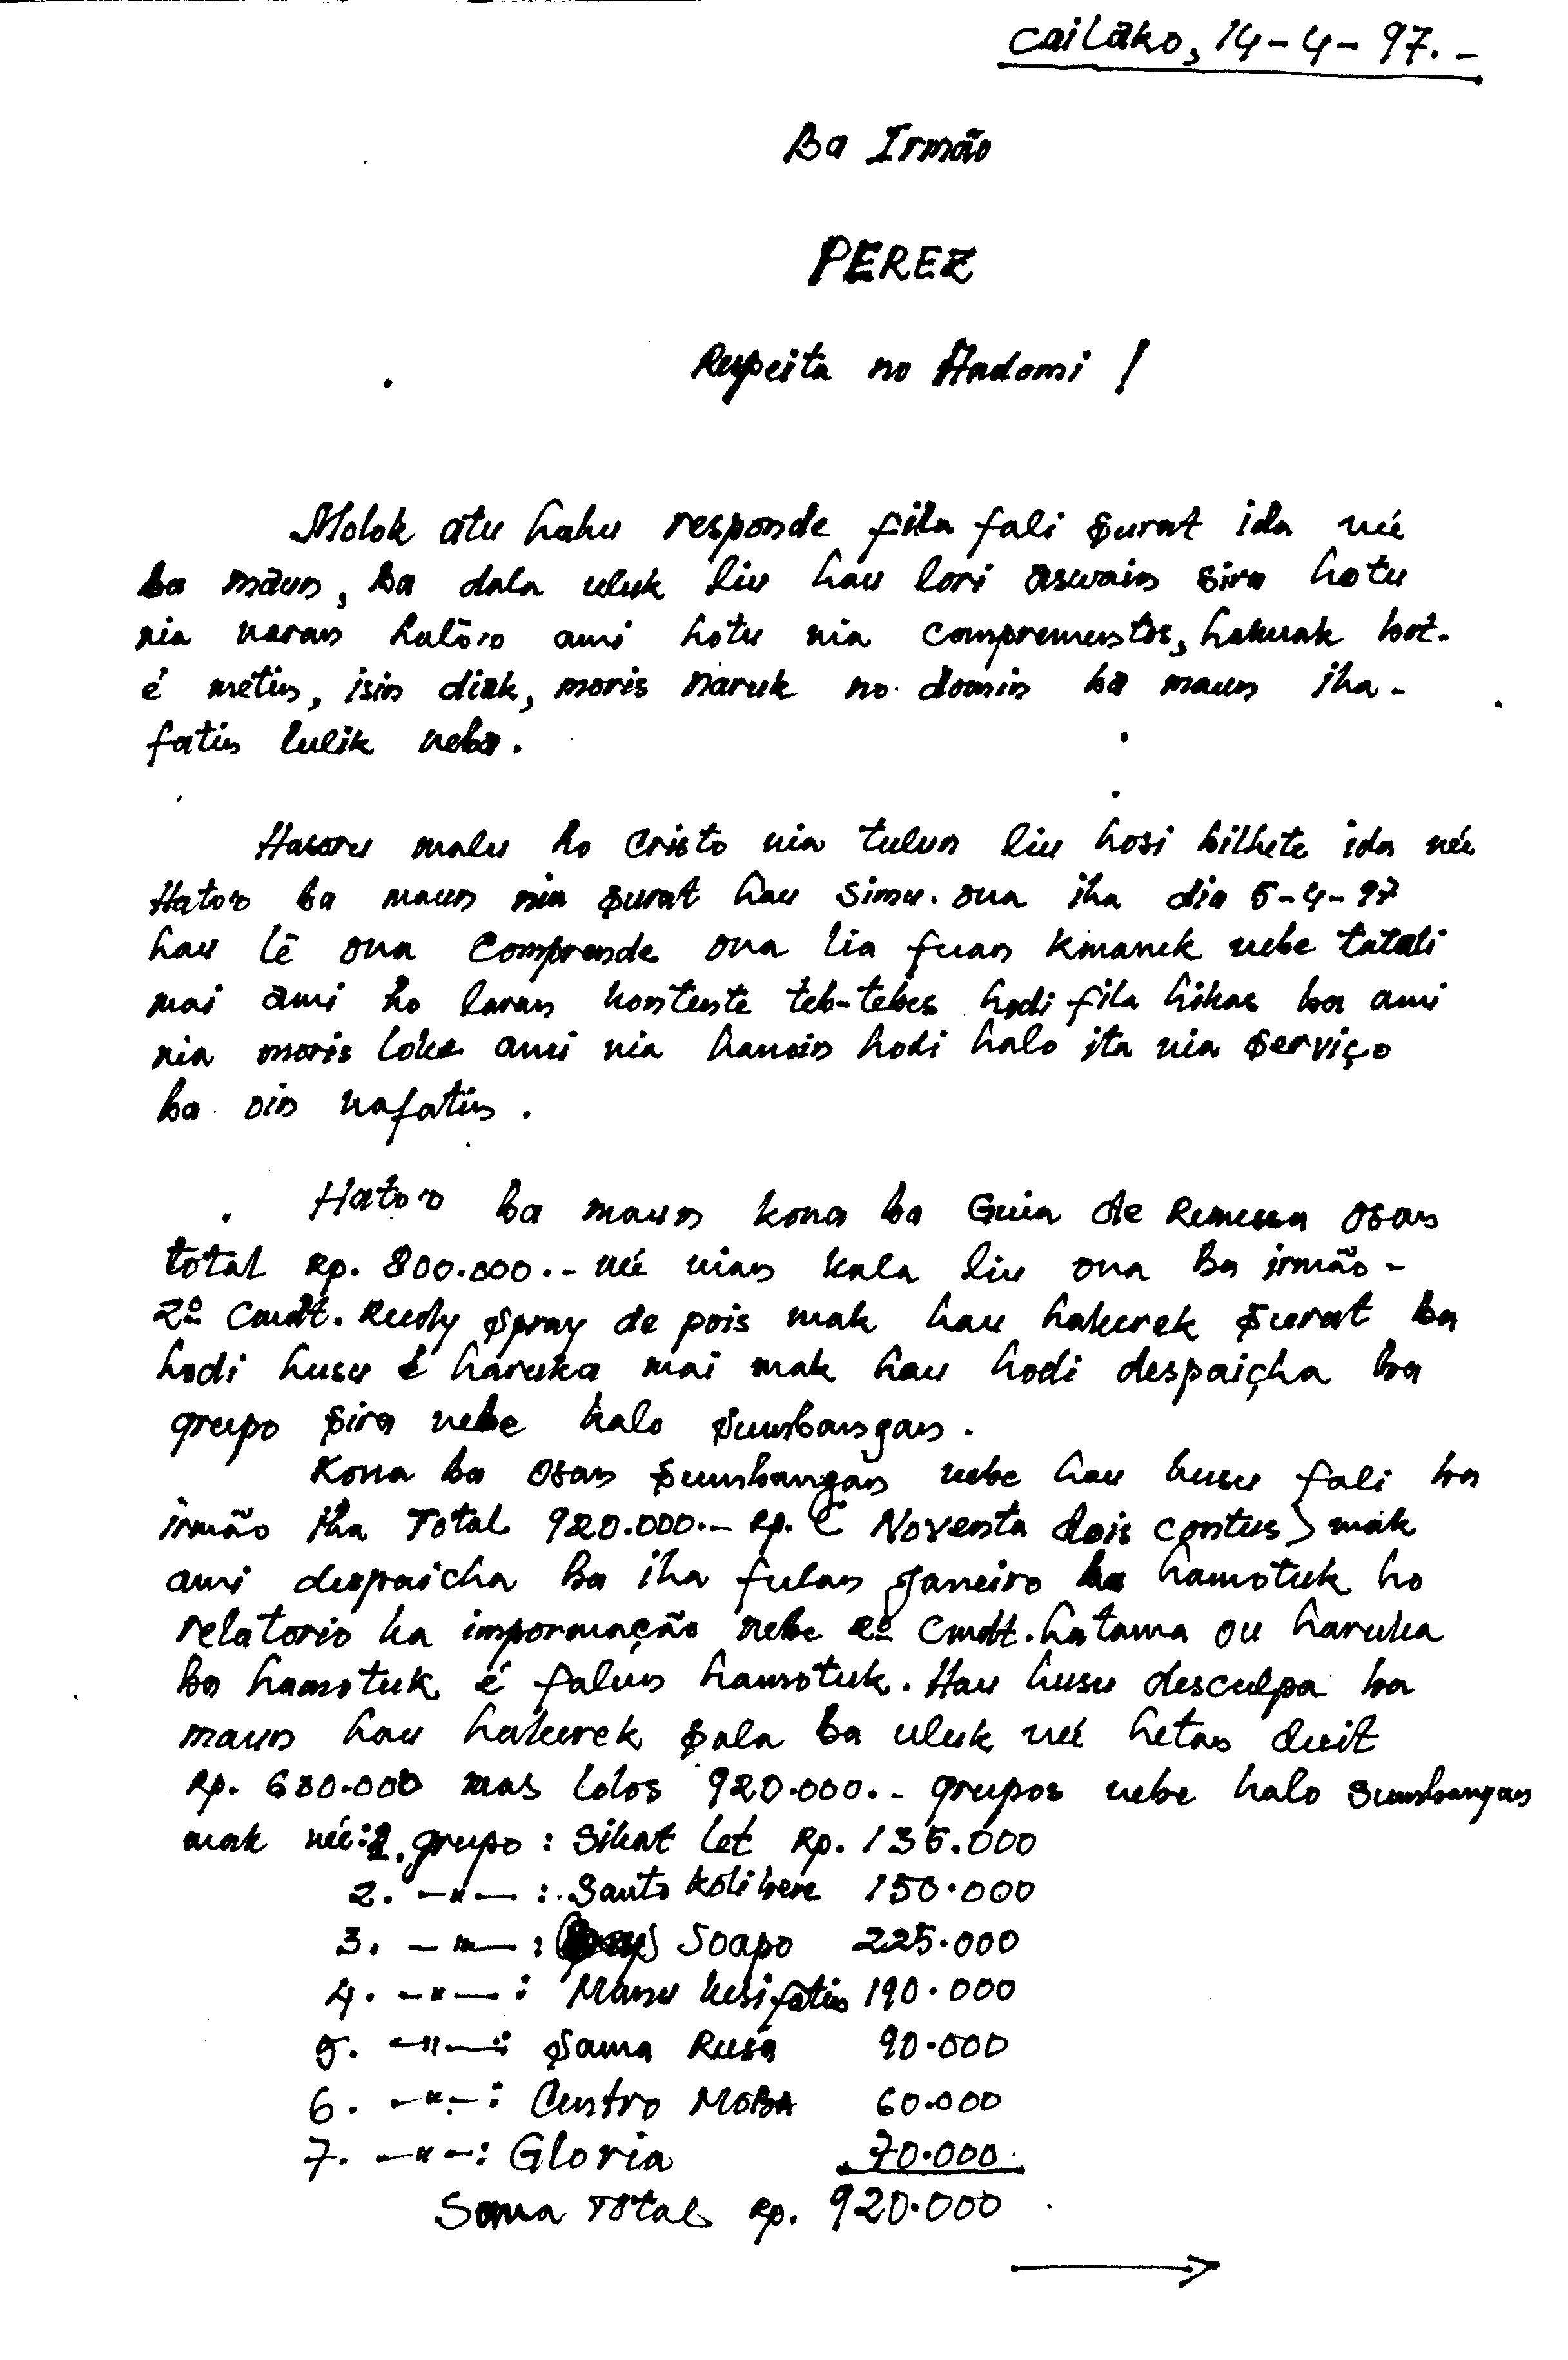 Cailáko, 14-4-97.-
Ba Irmão
PEREZ
Respeita no Hadomi !
Molok atu hahu responde fila fali surat ida né
ba máun, ba dala uluk liu hau lori aswain sira hotu
nia naran halóro ami hotu nia comprementos, hakuak bot-
é métin, isin diak, moris naruk no domin ba maun iha-
fatin lulik neba.
Hasoru malu ho Cristo nia tulun liu hosi bilhete ida né
Hator ba maun nia surat hau simu. ona iha dia 5-4-97
hau lê ona Comprende ona lia fuan kmanek nebe tatoli
mai ami ho laran kontente teb-tebes hodi fila hikas ba ami
nia moris loke ami nia hanoin hodi halo ita nia serviço
ba oin nafatin.
Hator ba maun kona ba Guia de Remessa osan
total Rp. 800.000.- né nian kala liu ona ba irmão-
2º Cmdt. Rudy Spray de pois mak hau hakerek surat ba
hodi husu é haruka mai mak hau hodi despaiçha ba
grupo sira nebe halo sumbangan.
Kona ba osan sumbangan nebe hau husu fali ba
irmão iha Total 920.000.- Rp. ( Noventa dois contus ) mak
ami despaicha ba iha fulan Janeiro ba hamotuk ho
relatorio ka impormação nebe 2º Cmdt. hatama ou haruka
ba hamotuk é falun hamotuk. Hau husu desculpa ba
maun hau hakerek sala ba uluk né hetan duit
Rp. 680.000 mas lolos 920.000.- grupos nebe halo sumbangan
mak né:1. grupo : Sikat let Rp. 135.000
2. -"- : Santo kolibere 150.000
3. -"- : Soapo 225.000
4. -"- : Manu kesi fatin 190.000
5. -"- : Sama Rusa 90.000
6. -"- : Centro MOBA 60.000
7. -"- : Gloria 70.000
Soma Total Rp. 920.000